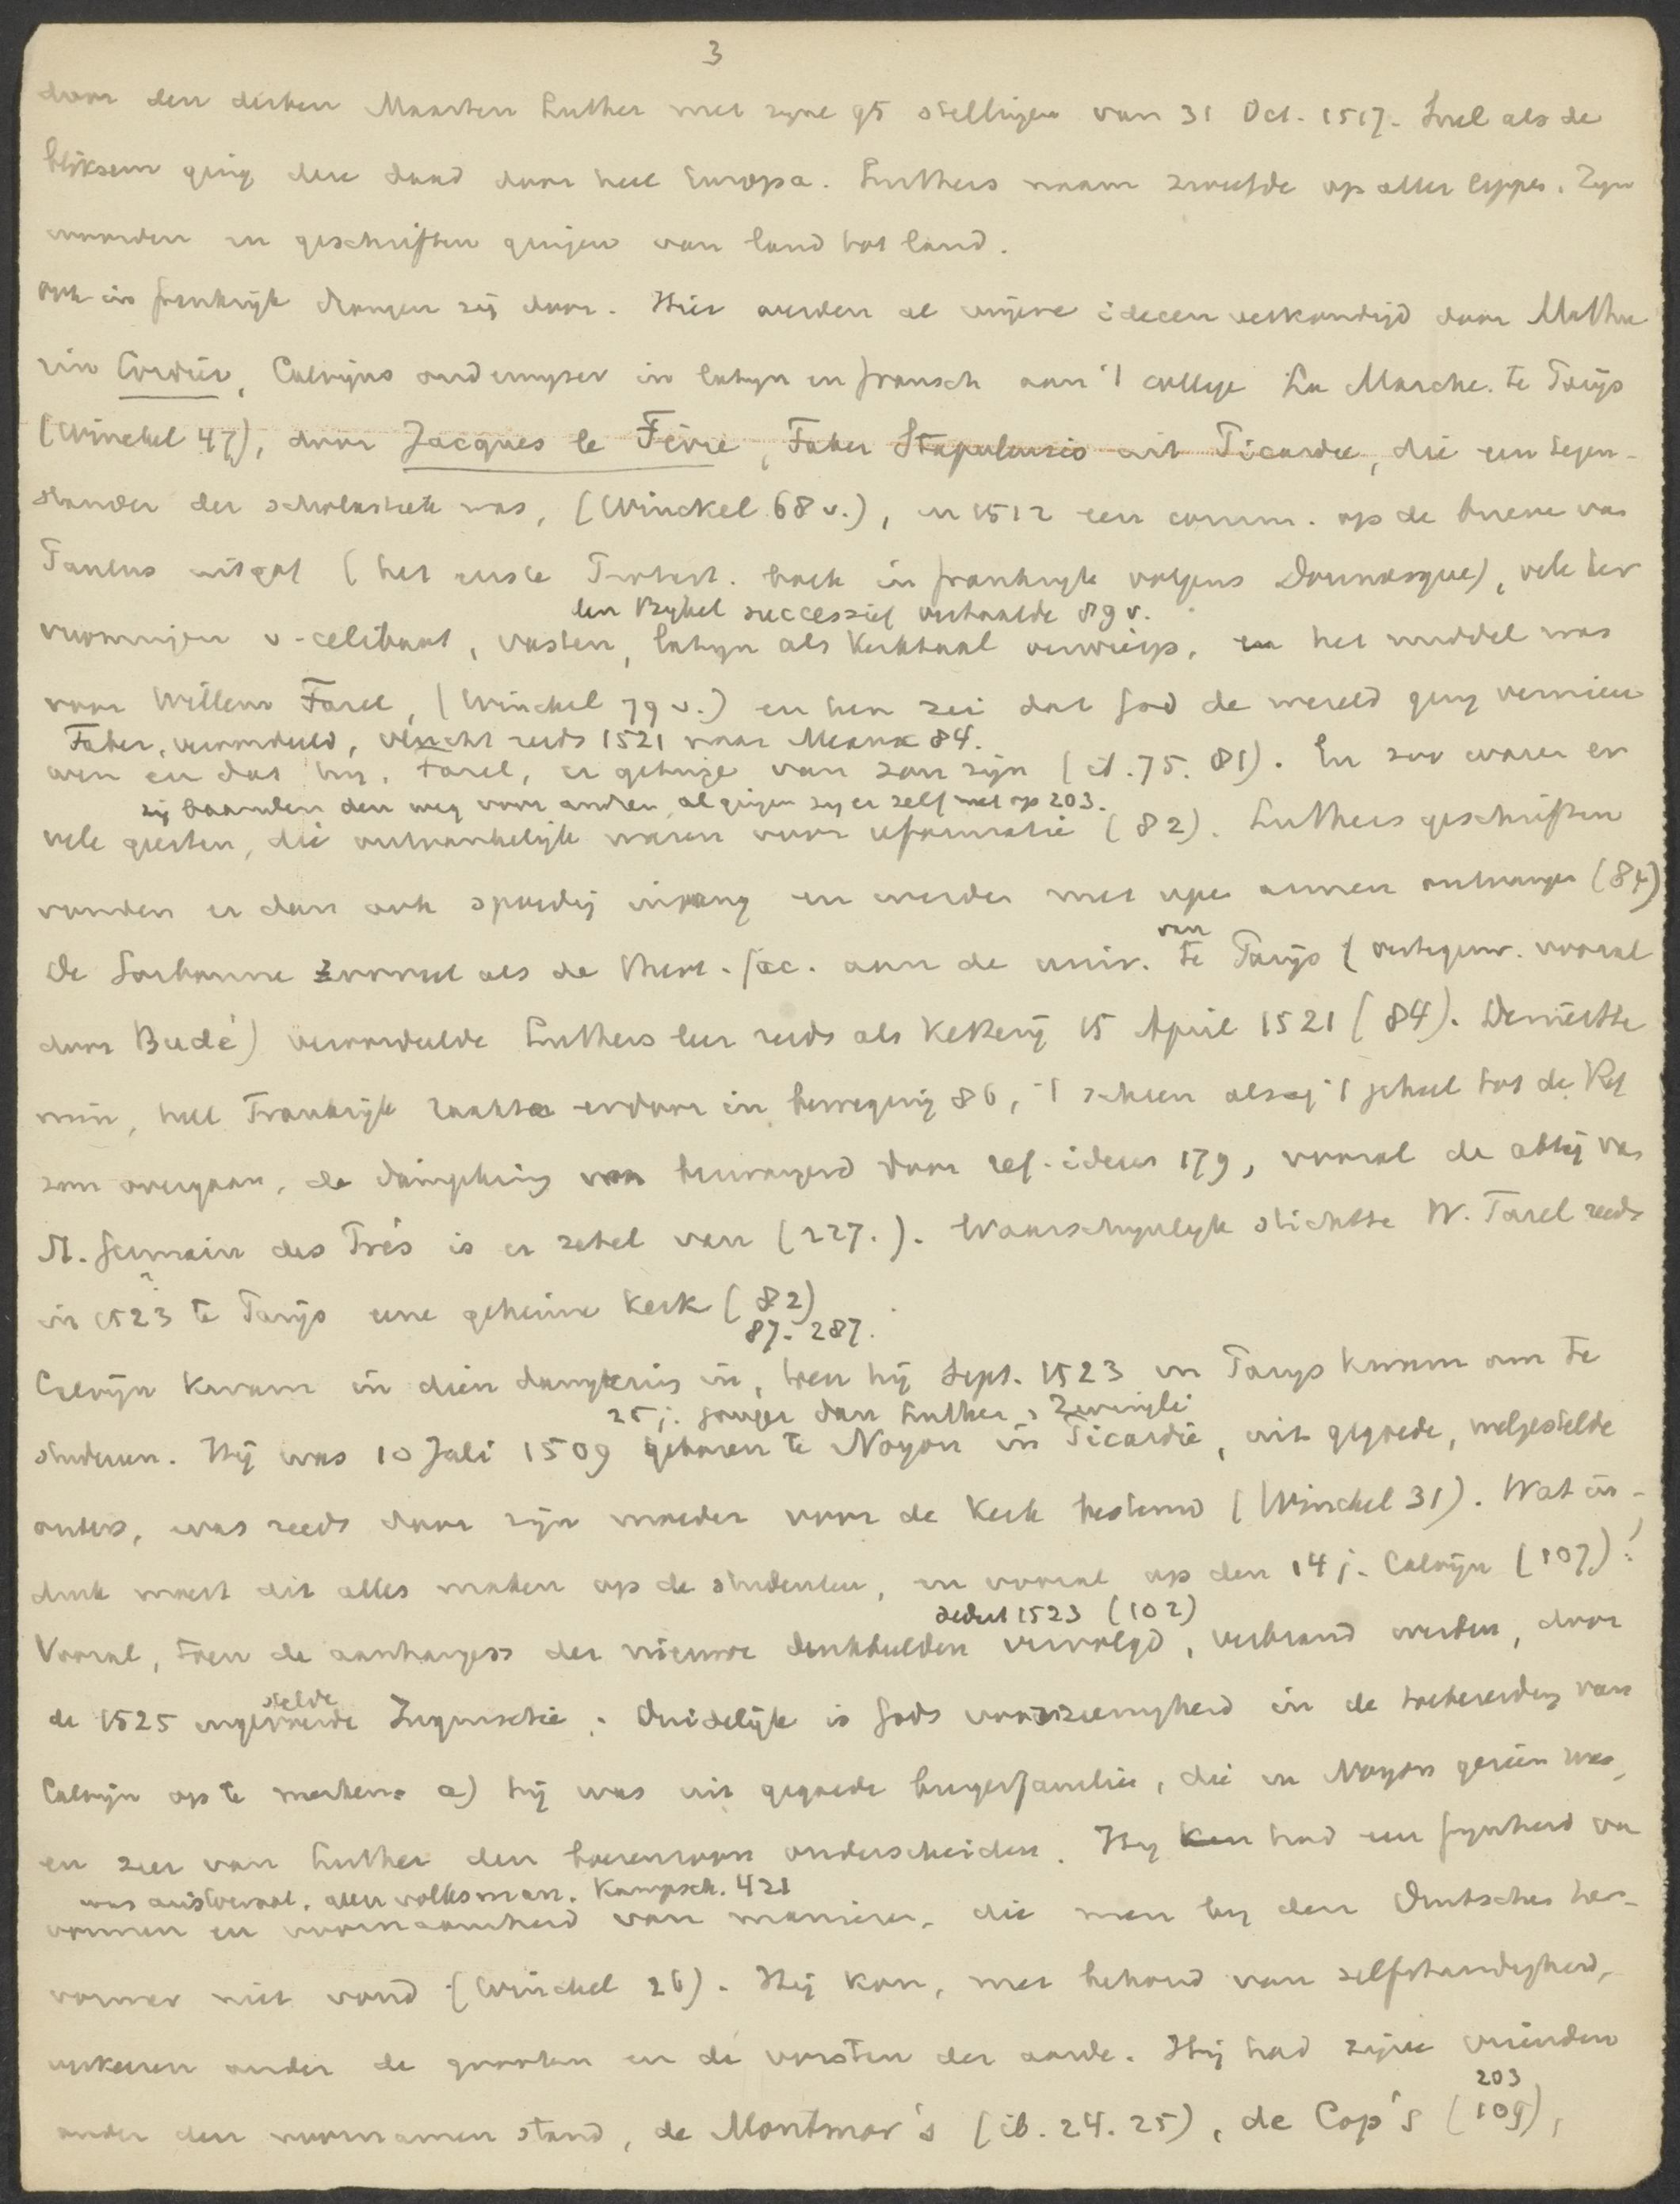 3
door den dichten Maarten Luther met zijne 95 stellingen van 31 Oct. 1517. Snel als de
bliksem ging dere daad door heel Europa. Luthers naam zweefde op aller lippen. Zijn
woorden en geschriften gingen van land tot land.
Ook in frankrijk drongen zij door. Hier werden al nijere ideeen verkondigd door Mathu
rin Cordier, Calvijns onderwijzer in latijn en fransch aan 't college La Marche te Parijs
(Winckel 47), door Jacques le Fèvre, Faber Stapulensis uit Picardie, die een tegen-
stander der scholastiek was, (Winckel 68 v.), in 1512 een comm. op de brieven van
Paulus uitgaf (het eerste Protest. boek in frankrijk volgens Doumergue), vele ker
den Bijbel successief vertaalde 89 v.
vormingen v. celibaat, vasten, latijn als Kerktaal verwierp, en het middel was
voor Willem Farel, (Winckel 79 v.) en hem zei dat God de wereld ging vernieu
Faber, veroordeeld, vlucht reeds 1521 naar Meaux 84.
wen en dat hij, Farel, er getuige van zou zijn (ib. 75. 81). En zoo waren er
zij baanden den weg voor anderen, al gingen zij er zelf niet op 203.
vele geesten, die ontvankelijk waren voor reformatie (82). Luthers geschriften
vonden er dan ook spoedig ingang en werden met open armen ontvangen (84)
van
De Sorbonne zoowel als de theol. fac. aan de univ. te Parijs (vertegenw. vooral
door Budé) veroordeelde Luthers leer reeds als Ketterij 15 April 1521 (84). Desniette
min, heel Frankrijk raakte erdoor in beweging 86, 't scheen alsof 't geheel tot de Ref
zou overgaan, de dampkring was bezwangerd door ref. ideeen 179, vooral de abdij van
St. Germain des Prés is er zetel van (227.). Waarschijnlijk stichtte W. Farel reeds
?
in 1523 te Parijs eene geheime Kerk (82)
87. 287.
Calvijn kwam in dien dampkring in, toen hij Sept. 1523 in Parijs kwam om te
25 j. jonger dan Luther, Zwingli
studeeren. Hij was 10 Juli 1509 geboren te Noyon in Picardië, uit gegoede, welgestelde
ouders, was reeds door zijn moeder voor de Kerk bestemd (Winckel 31). Wat in-
druk moest dit alles maken op de studenten, en vooral op den 14 j. Calvijn (107)!
sedert 1523 (102)
Vooral, toen de aanhangers der nieuwe denkbeelden vervolgd, verbrand werden, door
stelde
de 1525 ingevoerde Inquisitie. Duidelijk is Gods voorzienigheid in de toebereiding van
Calvijn op te merken: a) hij was uit gegoede burgerfamilie, die in Noyon gezien was,
en zeer van Luther den boerenzoon onderscheiden. Hij kon had een fijnheid van
was aristocraat, geen volksman. Kampsch. 421
vormen en voornaamheid van manieren, die men bij den Duitschen her-
vormer niet vond (Winckel 26). Hij kon, met behoud van zelfstandigheid,
verkeeren onder de grooten en de vorsten der aarde. Hij had zijne vrienden
203
onder den voornamen stand, de Montmor's (ib. 24. 25), de Cop's (109),